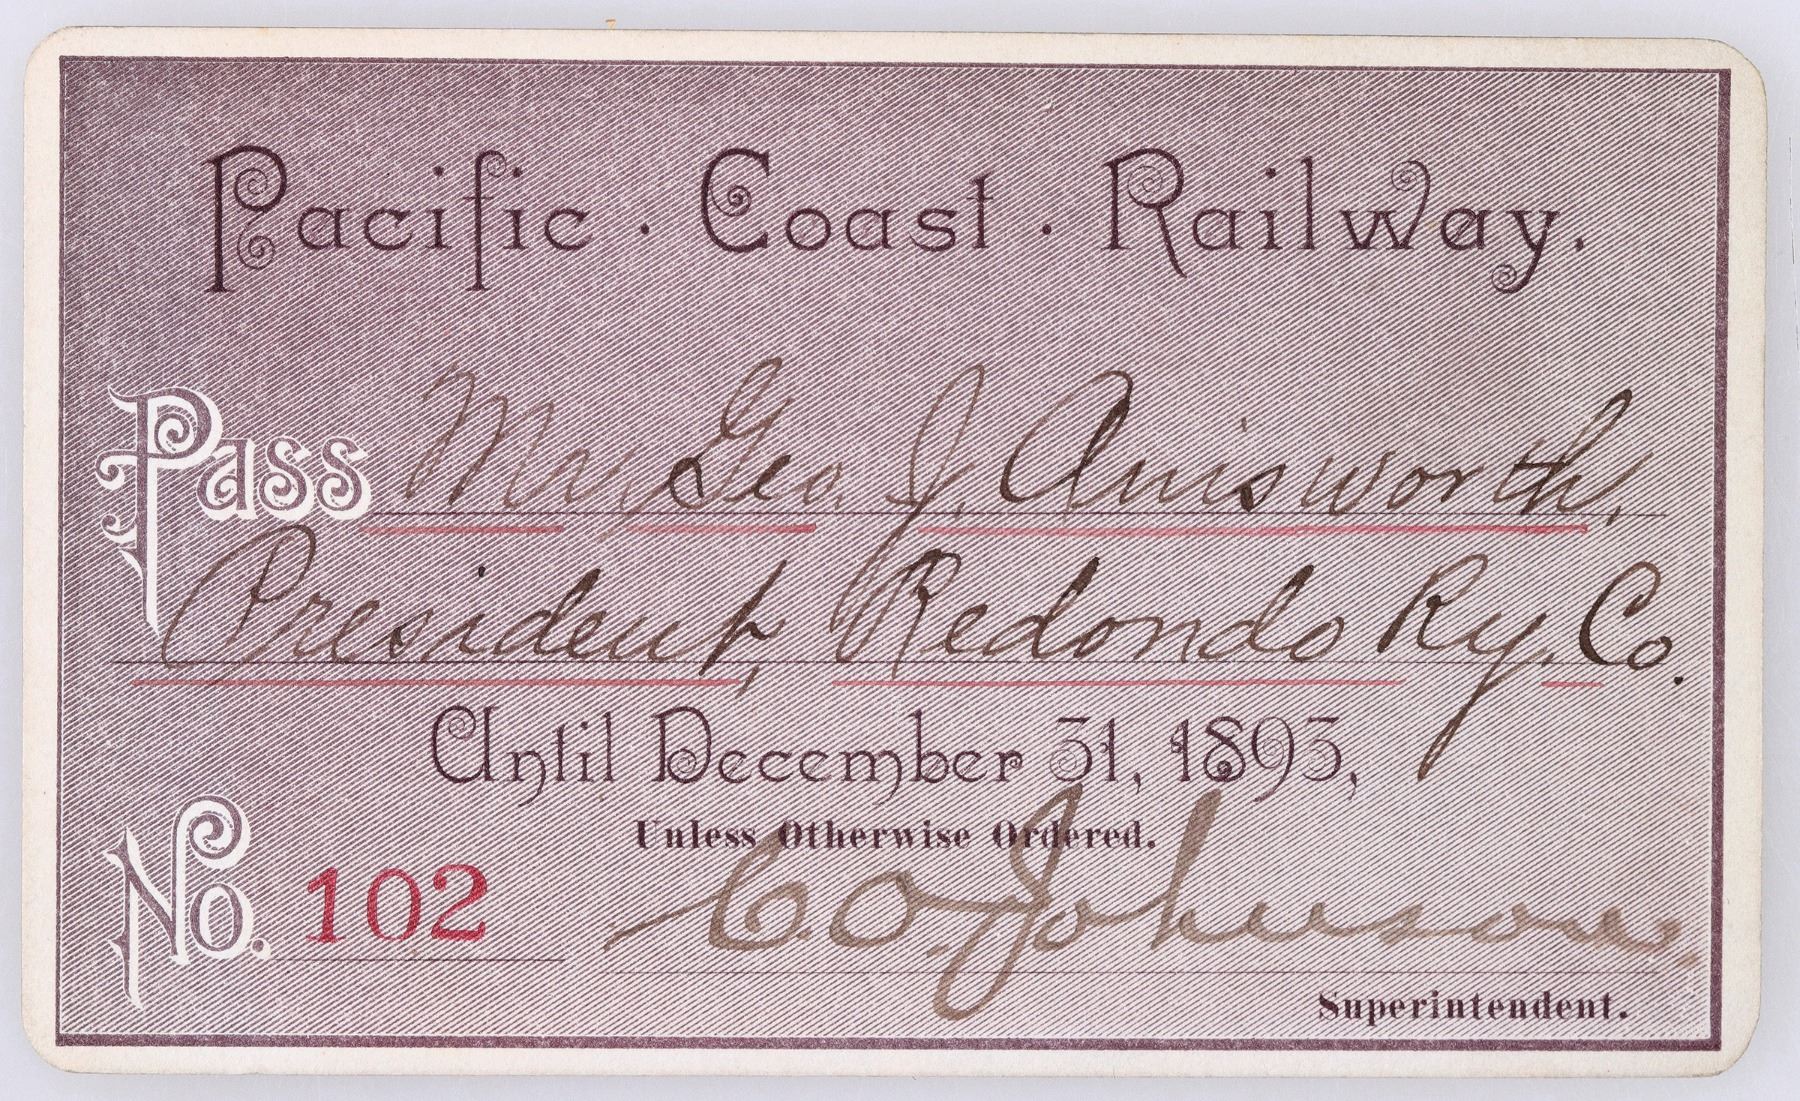 Pacific · Coast · Railway.
Pass Mr. Geo. J. Ainsworth,
President, Redondo Ry. Co.
Until December 31, 1893,
Unless Otherwise Ordered.
No. 102 C. O. Johnson.
Superintendent.